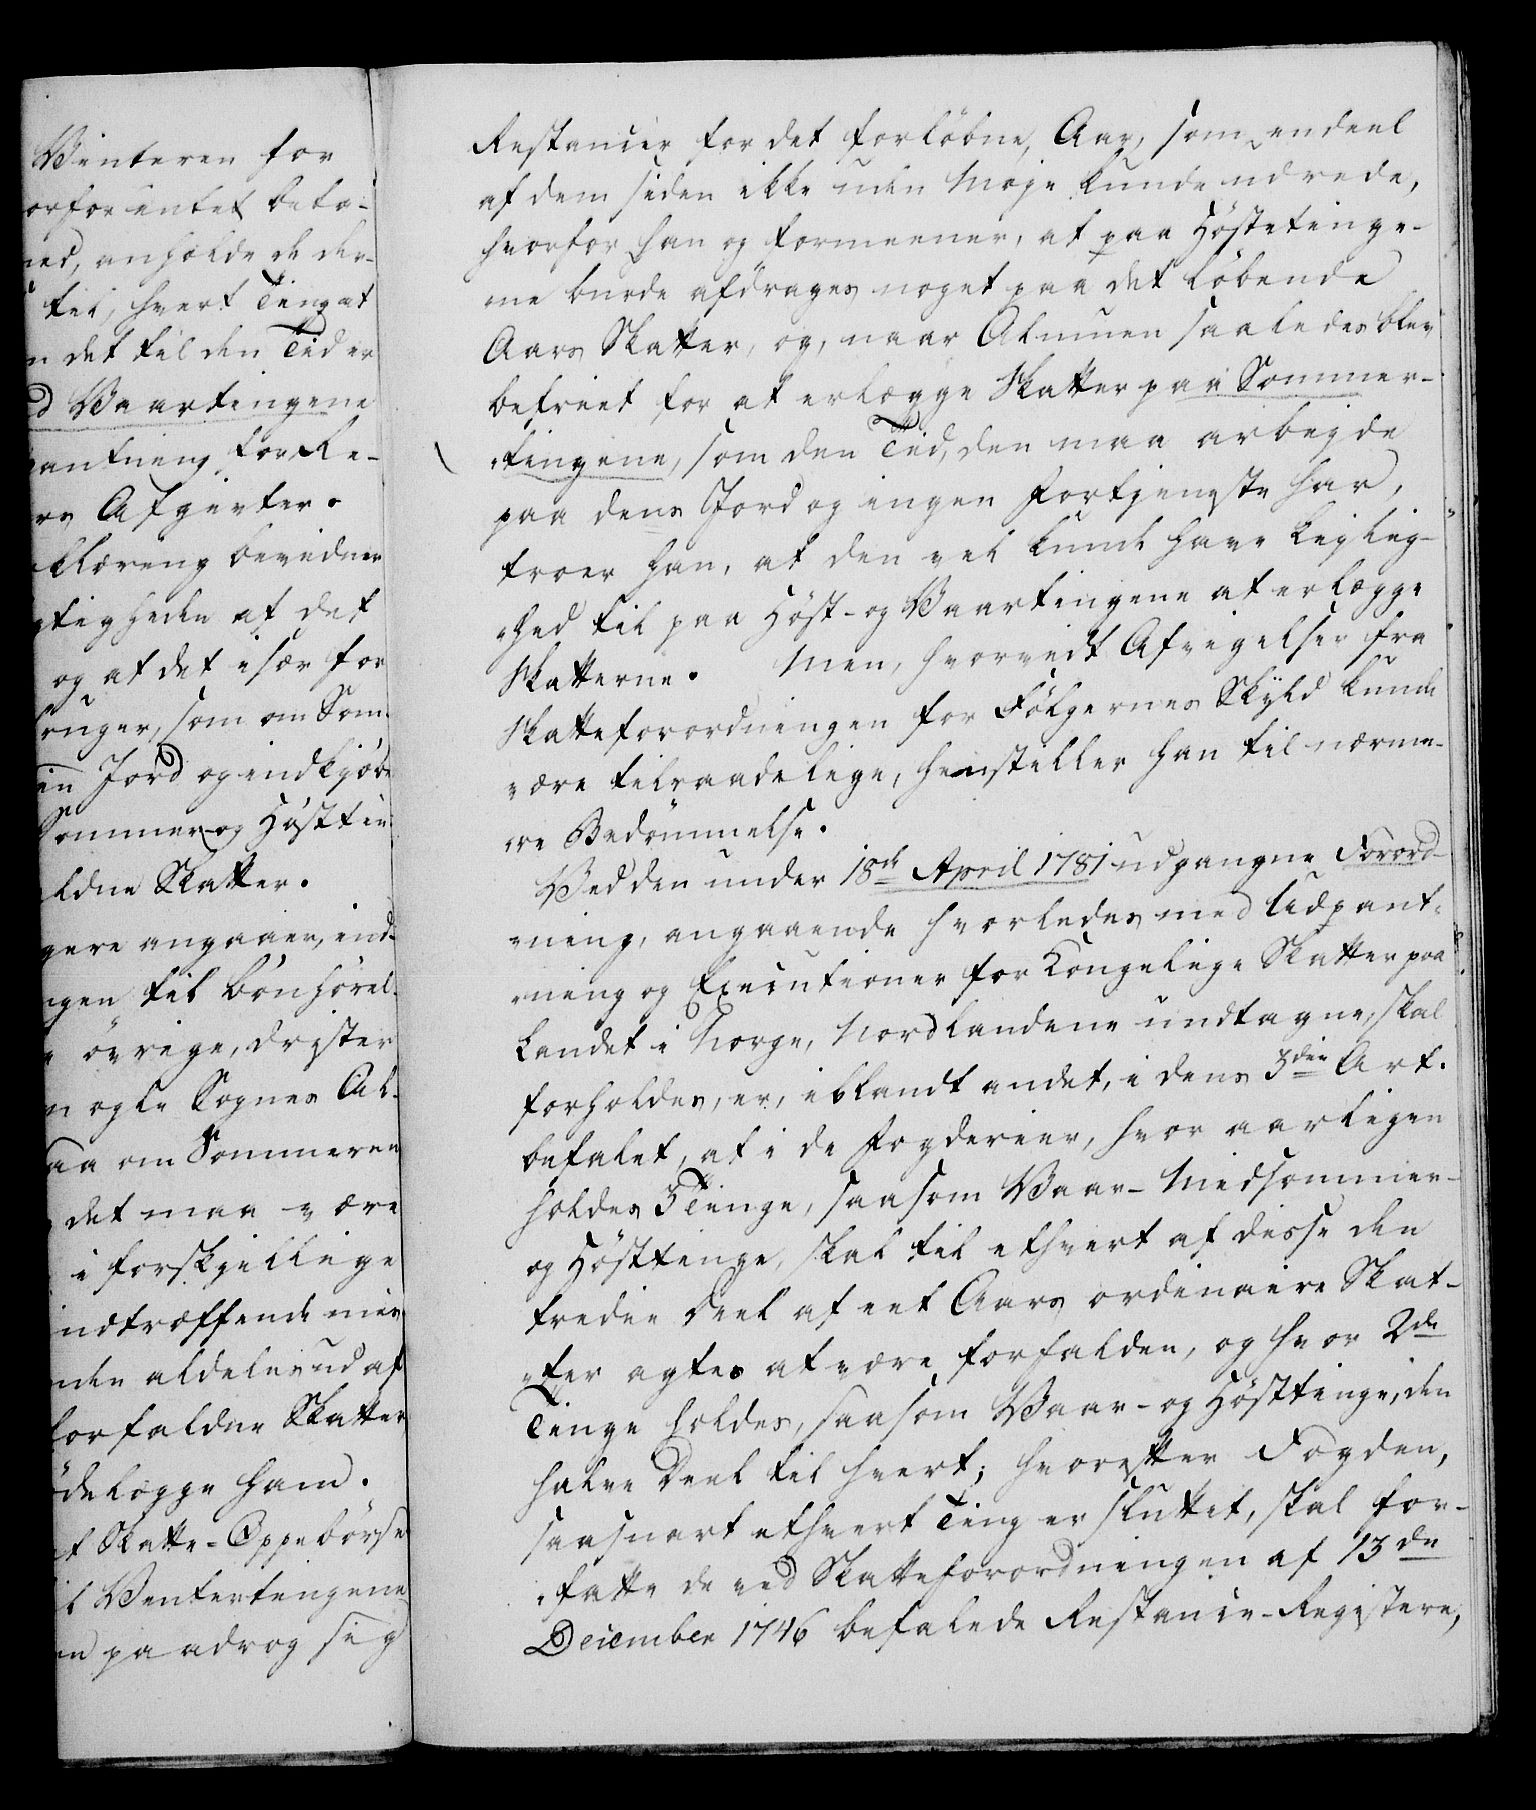 Vinteren for
orforuntet beta-
ned, anholde de der-
til, hvert Ting at
n det til den Tid er
d Vaartingene
pantning for Re-
rs Afgivter.
klæring bevidner
gtigheden af det
og at det især for
ruger, som om Som-
in Jord og indkjøbe
Sommer- og Høstti-
ldne Skatter.
gere angaaer, ind-
ngen til bønhørel-
øvrige, drister
n ogle Sognes Al-
aa om Sommeren
det maa være
i forskjellige
indtræffende nie-
nden aldeles ud af
forfaldne Skatter
ödelægge ham.
t Skatte-Oppebørse
l Vintertingene
n paadrog sig
Restancer for det forløbne Aar, som endeel
af dem siden ikke uden Møje kunde udrede,
hvorfor han og formeener, at paa Høstetinge-
ne burde afdrages noget paa det løbende
Aars Skatter, og, naar Almuen saaledes blev
befriet for at erlægge Skatter paa Sommer-
tingene, som den Tid, den maa arbejde
paa dens Jord og ingen Fortjeneste har,
troer han, at den vel kunde have Lejlig-
hed til paa Høst- og Vaartingene at erlægge
Skatterne. Men, hvorvidt Afvigelser fra
Skatteforordningen for Følgernes Skyld kunde
være tilraadelige, henstiller han til nærme-
re Bedømmelse.
Ved den under 18de April 1781 udgangne Forord-
ning, angaaende hvorledes med Udpant-
ning og Executioner for Kongelige Skatter paa
Landet i Norge, Nordlandene undtagne, skal
forholdes, er, iblandt andet, i dens 3die Art.
befalet, at i de Fogderier, hvor aarligen
holdes 3 Tinge, saasom Vaar- Midsommer-
og Høsttinge, skal til ethvert af disse den
tredie Deel af eet Aars ordinaire Skat-
ter agtes at være forfalden, og hvor 2de
Tinge holdes, saasom Vaar- og Høsttinge, den
halve Deel til hvert; hvorefter Fogden,
saasnart ethvert Ting er sluttet, skal for-
fatte de ved Skatteforordningen af 13de
December 1746 befalede Restance-Registere,